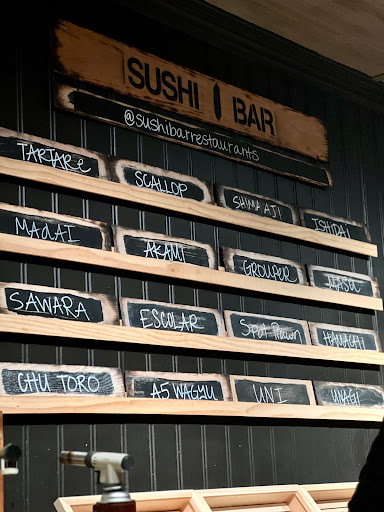 SUSHI BAR
@sushibarrestaurants
TARTARE SCALLOP SHIMA AJI ISHIDAI
MADAI AKAMI GROUPER
SAWARA ESCOLAR Spot Prawn HAMACHI
CHU TORO A5 WAGYU UNI UNAGI